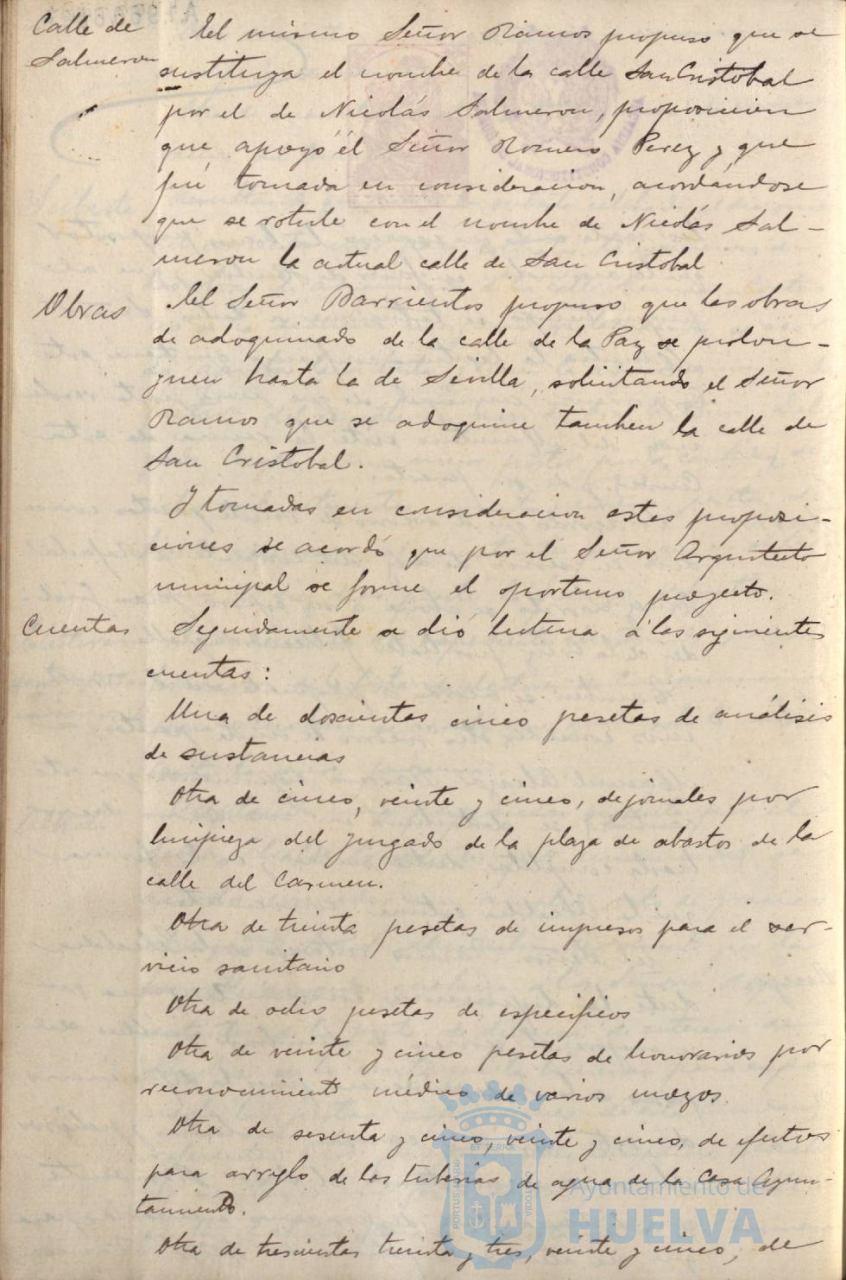 Calle de
Salmeron
El mismo Señor Ramos propuso que se
sustituya el nombre de la calle San Cristobal
por el de Nicolás Salmeron, proposicion
que apoyó el Señor Romero Perez y que
fué tomada en consideracion, acordándose
que se rotule con el nombre de Nicolás Sal-
meron la actual calle de San Cristobal
Obras
El Señor Barrientos propuso que las obras
de adoquinado de la calle de la Paz se prolon-
guen hasta la de Sevilla, solicitando el Señor
Ramos que se adoquine tambien la calle de
San Cristobal.
Y tomadas en consideracion estas proposi-
ciones se acordó que por el Señor Arquitecto
municipal se forme el oportuno proyecto.
Cuentas
Seguidamente se dió lectura á las siguientes
cuentas:
Una de doscientas cinco pesetas de análisis
de sustancias
Otra de cinco, veinte y cinco, de jornales por
limpieza del juzgado de la plaza de abastos de la
calle del Carmen.
Otra de treinta pesetas de impresos para el ser-
vicio sanitario
Otra de ocho pesetas de especificos
Otra de veinte y cinco pesetas de honorarios por
reconocimiento médico de varios mozos
Otra de sesenta y cinco, veinte y cinco, de efectos
para arreglo de las tuberias de agua de la Casa Ayun-
tamiento.
Otra de trescientas treinta y tres, veinte y cinco, de
Ayuntamiento de
HUELVA